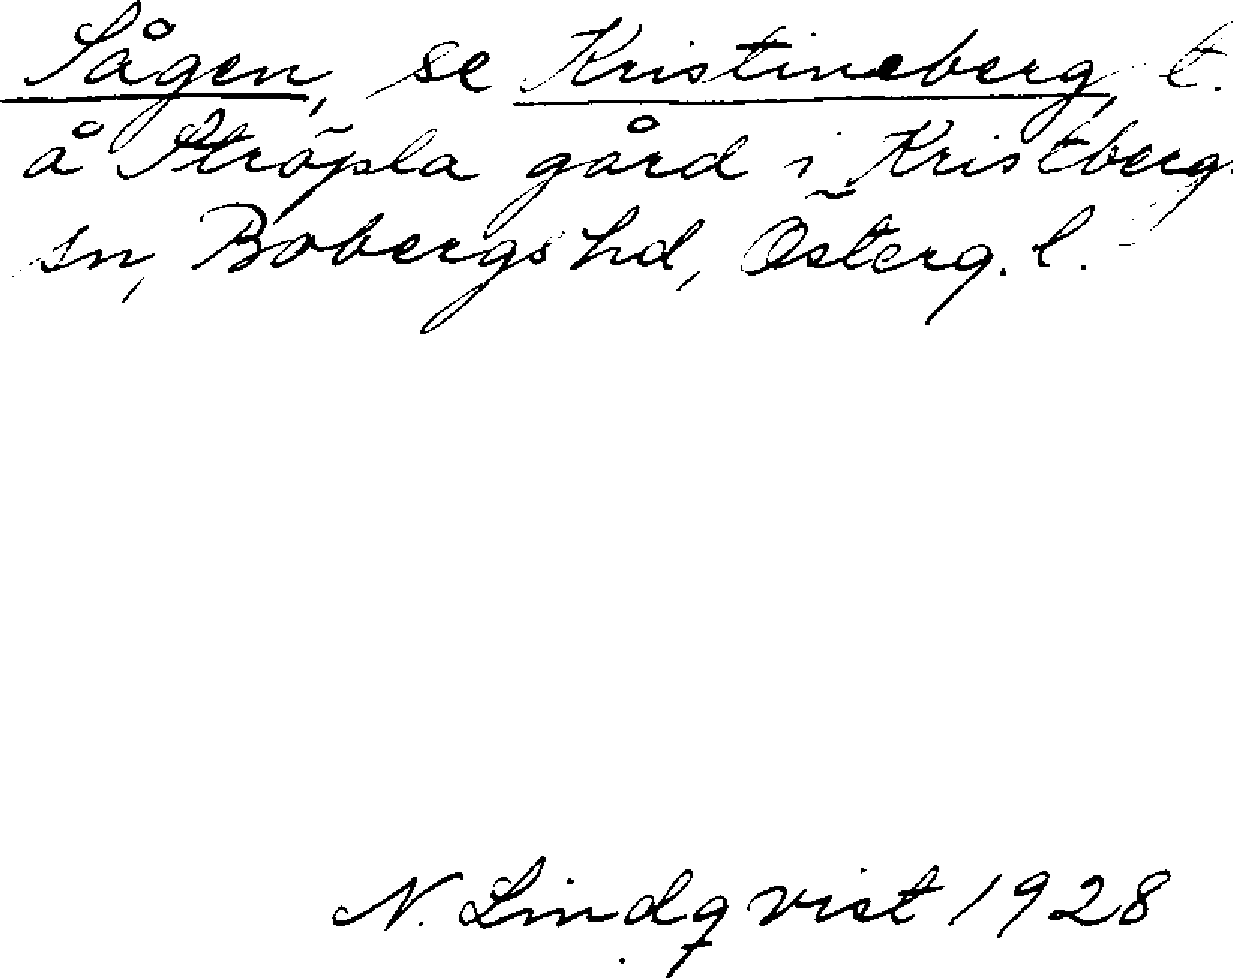 Sågen, se Kristineberg, t.
å Ströpla gård i Kristbergs
sn, Bobergs hd, Österg. l.
N. Lindqvist 1928